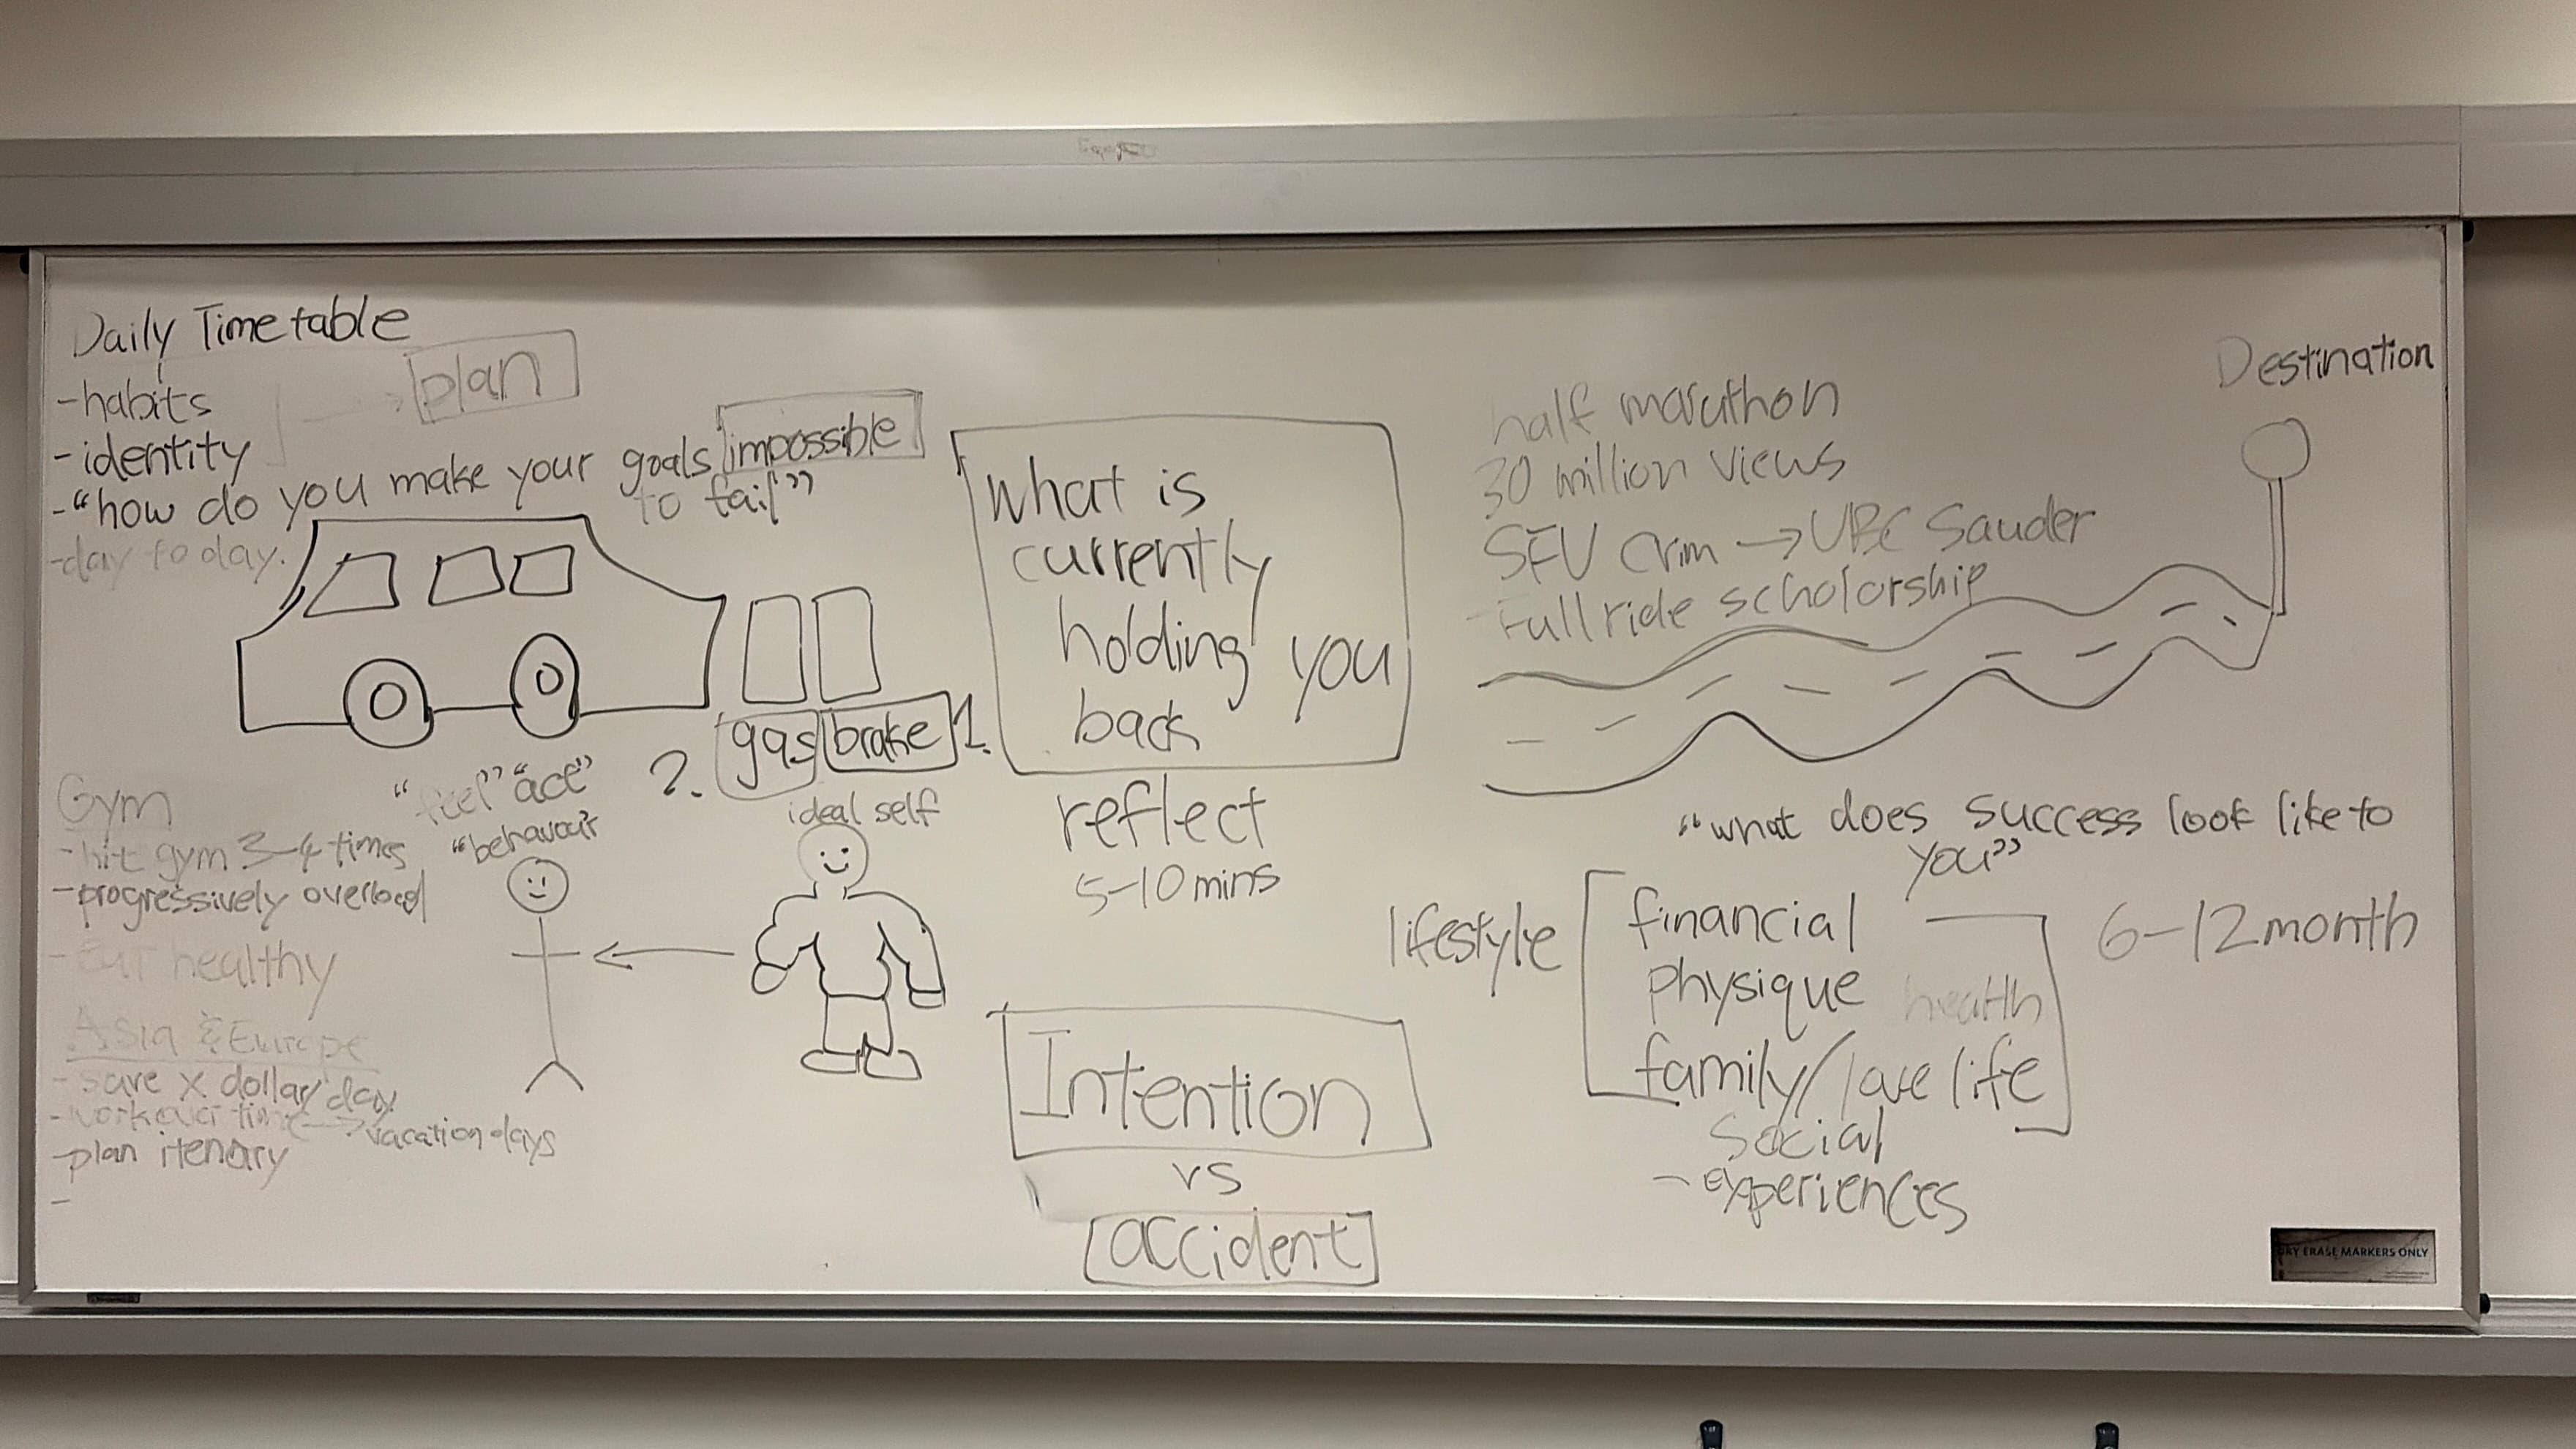 Daily Timetable
plan
-habits
-identity
-"how do you make your goals impossible
to fail"
-day to day.
gas brake 1.
2.
what is
currently
holding you
back
reflect
5-10 mins
half marathon
30 million views
SFU Crim → UBC Sauder
Full ride scholorship
Destination
Gym
-hit gym 3-4 times
-progressively overload
-Eat healthy
Asia & Europe
-save x dollar/day
-work over time → vacation days
-plan itenary
-
"feel" "act"
"behavour
ideal self
Intention
vs
accident
"what does success look like to
you"
lifestyle
financial
physique health
family/love life
social
-experiences
6-12 month
DRY ERASE MARKERS ONLY